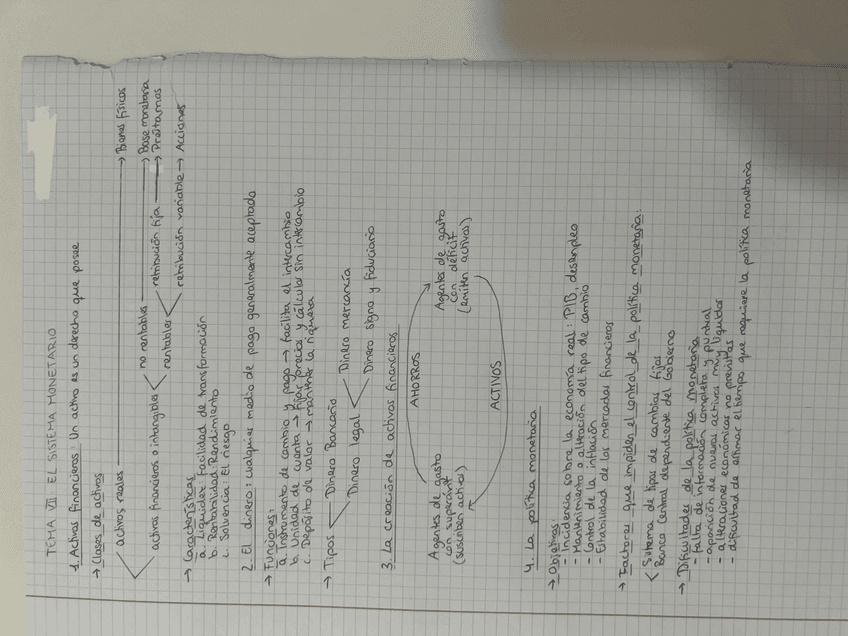 TEMA VII EL SISTEMA MONETARIO
1. Activos financieros: Un activo es un derecho que posee
→ Clases de activos
activos reales → Bienes físicos
activos financieros o intangibles
no rentables → Base monetaria
rentables
retribución fija → Préstamos
retribución variable → Acciones
→ Características
a. Liquidez: Facilidad de transformación
b. Rentabilidad: Rendimiento
c. Solvencia: El riesgo
2. El dinero: cualquier medio de pago generalmente aceptado
→ Funciones:
a. Instrumento de cambio y pago → facilita el intercambio
b. Unidad de cuenta → fijar precios y cálculo sin intercambio
c. Depósito de valor → mantener la riqueza
→ Tipos
Dinero Bancario
Dinero legal
Dinero mercancía
Dinero signo y fiduciario
3. La creación de activos financieros
AHORROS
Agentes de gasto
con superávit
(suscriben activos)
Agentes de gasto
con déficit
(emiten activos)
ACTIVOS
4. La política monetaria
→ Objetivos:
- Incidencia sobre la economía real: PIB, desempleo
- Mantenimiento o alteración del tipo de cambio
- Control de la inflación
- Estabilidad de los mercados financieros
→ Factores que impiden el control de la política monetaria:
Sistema de tipos de cambios fijos
Banco Central dependiente del Gobierno
→ Dificultades de la política monetaria
- falta de información completa y puntual
- aparición de nuevos activos muy líquidos
- alteraciones económicas no previstas
- dificultad de estimar el tiempo que requiere la política monetaria